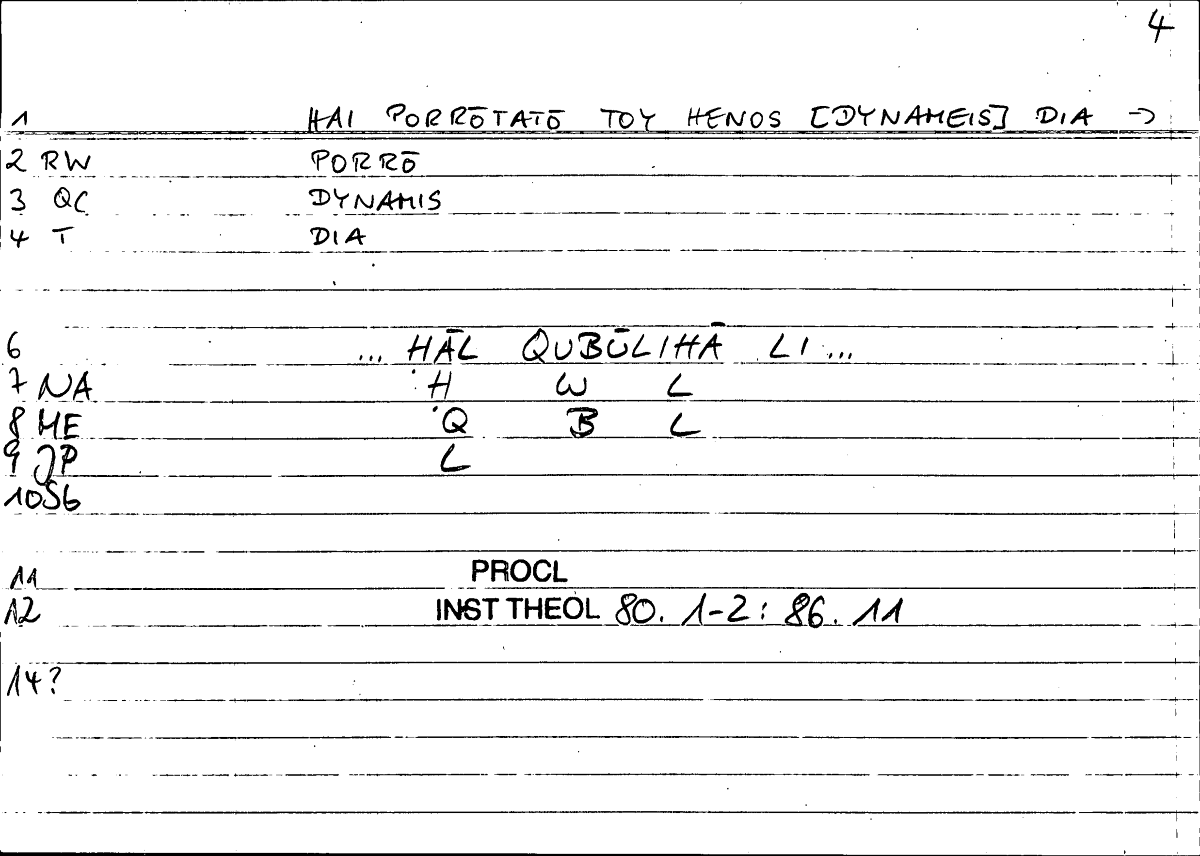 4
1 HAI PORRŌTATŌ TOY HENOS [DYNAMEIS] DIA →
2 RW PORRŌ
3 QC DYNAMIS
4 T DIA
6 ... HĀL QUBŪLIHĀ LI ...
7 NA H W L
8 ME Q B L
9 JP L
10 Sb
11 PROCL
12 INST THEOL 80. 1-2: 86. 11
14?